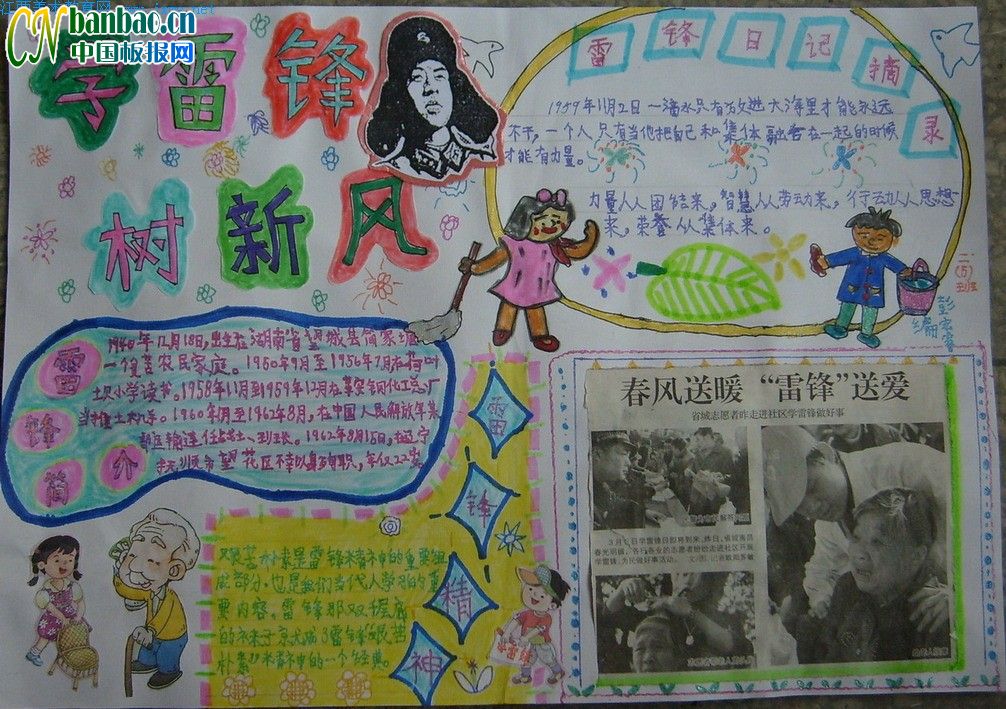 江西美术教育网
banbao.cn
中国板报网
学雷锋
树新风
雷锋日记摘录
1959年11月2日 一滴水只有放进大海里才能永远
不干,一个人只有当他把自己和集体融合在一起的时候
才能有力量。
力量从团结来,智慧从劳动来,行动从思想
来,荣誉从集体来。
二(5)班
编
雷锋简介
1940年12月18日,出生在湖南省望城县简家塘
一个贫苦农民家庭。1950年9月至1956年7月在荷叶
坝小学读书。1958年11月到1959年12月在鞍钢化工总厂
当推土机手。1960年1月至1962年8月,在中国人民解放军某
部运输连任战士、班长。1962年8月15日,在辽宁
抚顺市望花区不幸以身殉职,年仅22岁
雷锋精神
艰苦朴素是雷锋精神的重要组
成部分,也是我们当代人学习的重
要内容,雷锋那双
的袜子
朴素”精神中的一个经典。
学雷锋
春风送暖 “雷锋”送爱
省城志愿者昨走进社区学雷锋做好事